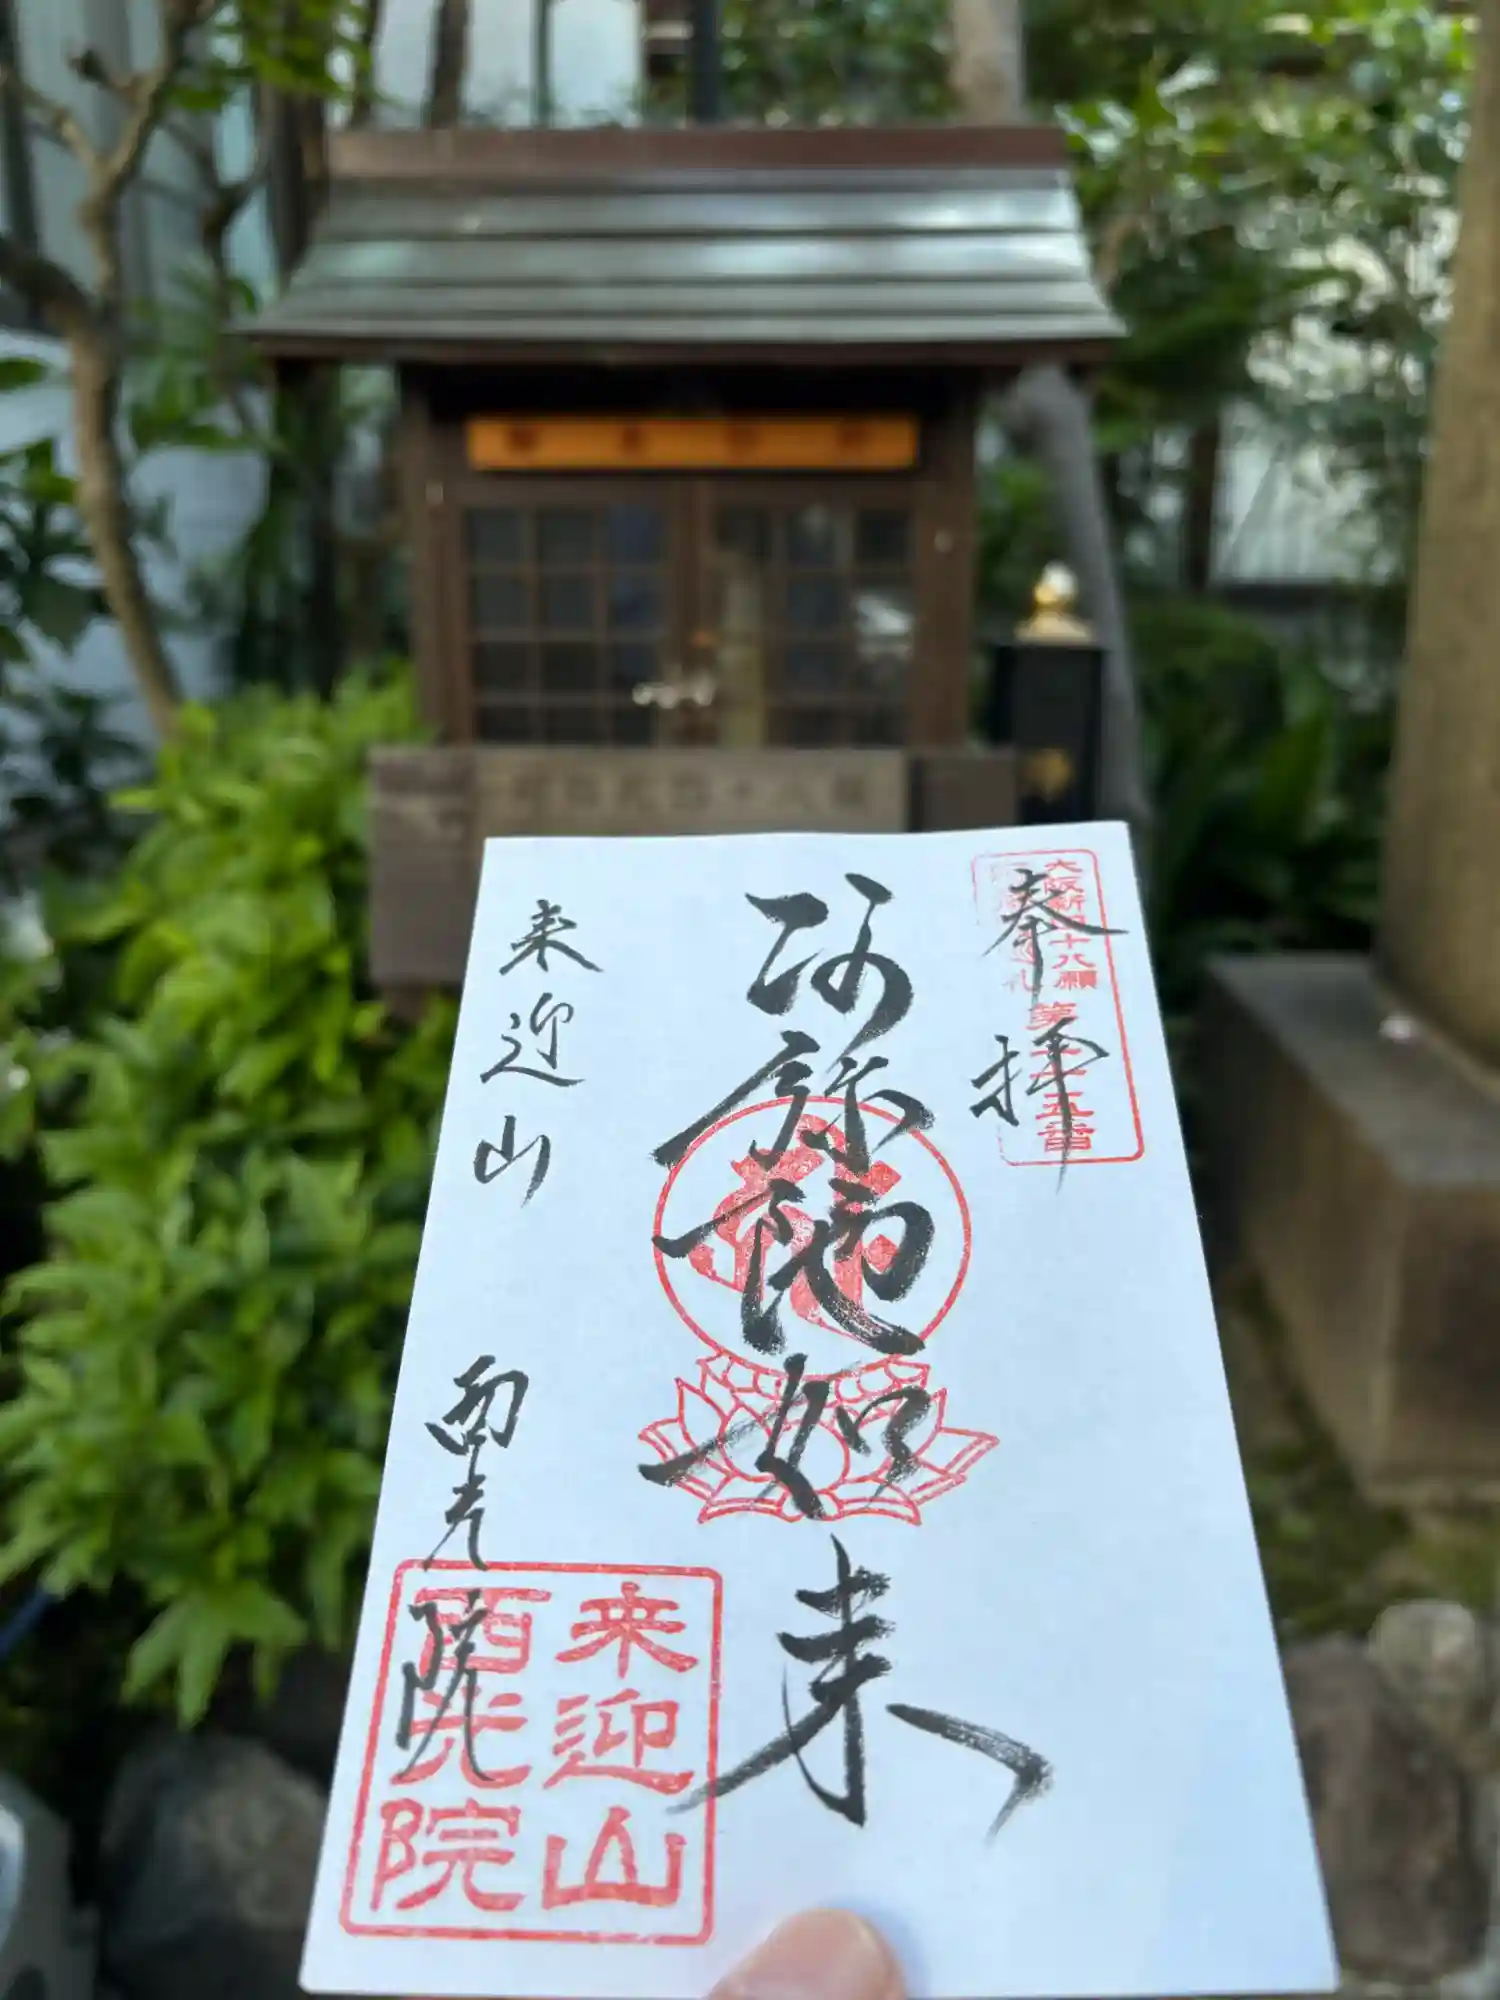 奉拝
大阪新四十八願
第二十五番
阿弥陀如来
来迎山
西光院
来迎山
西光院